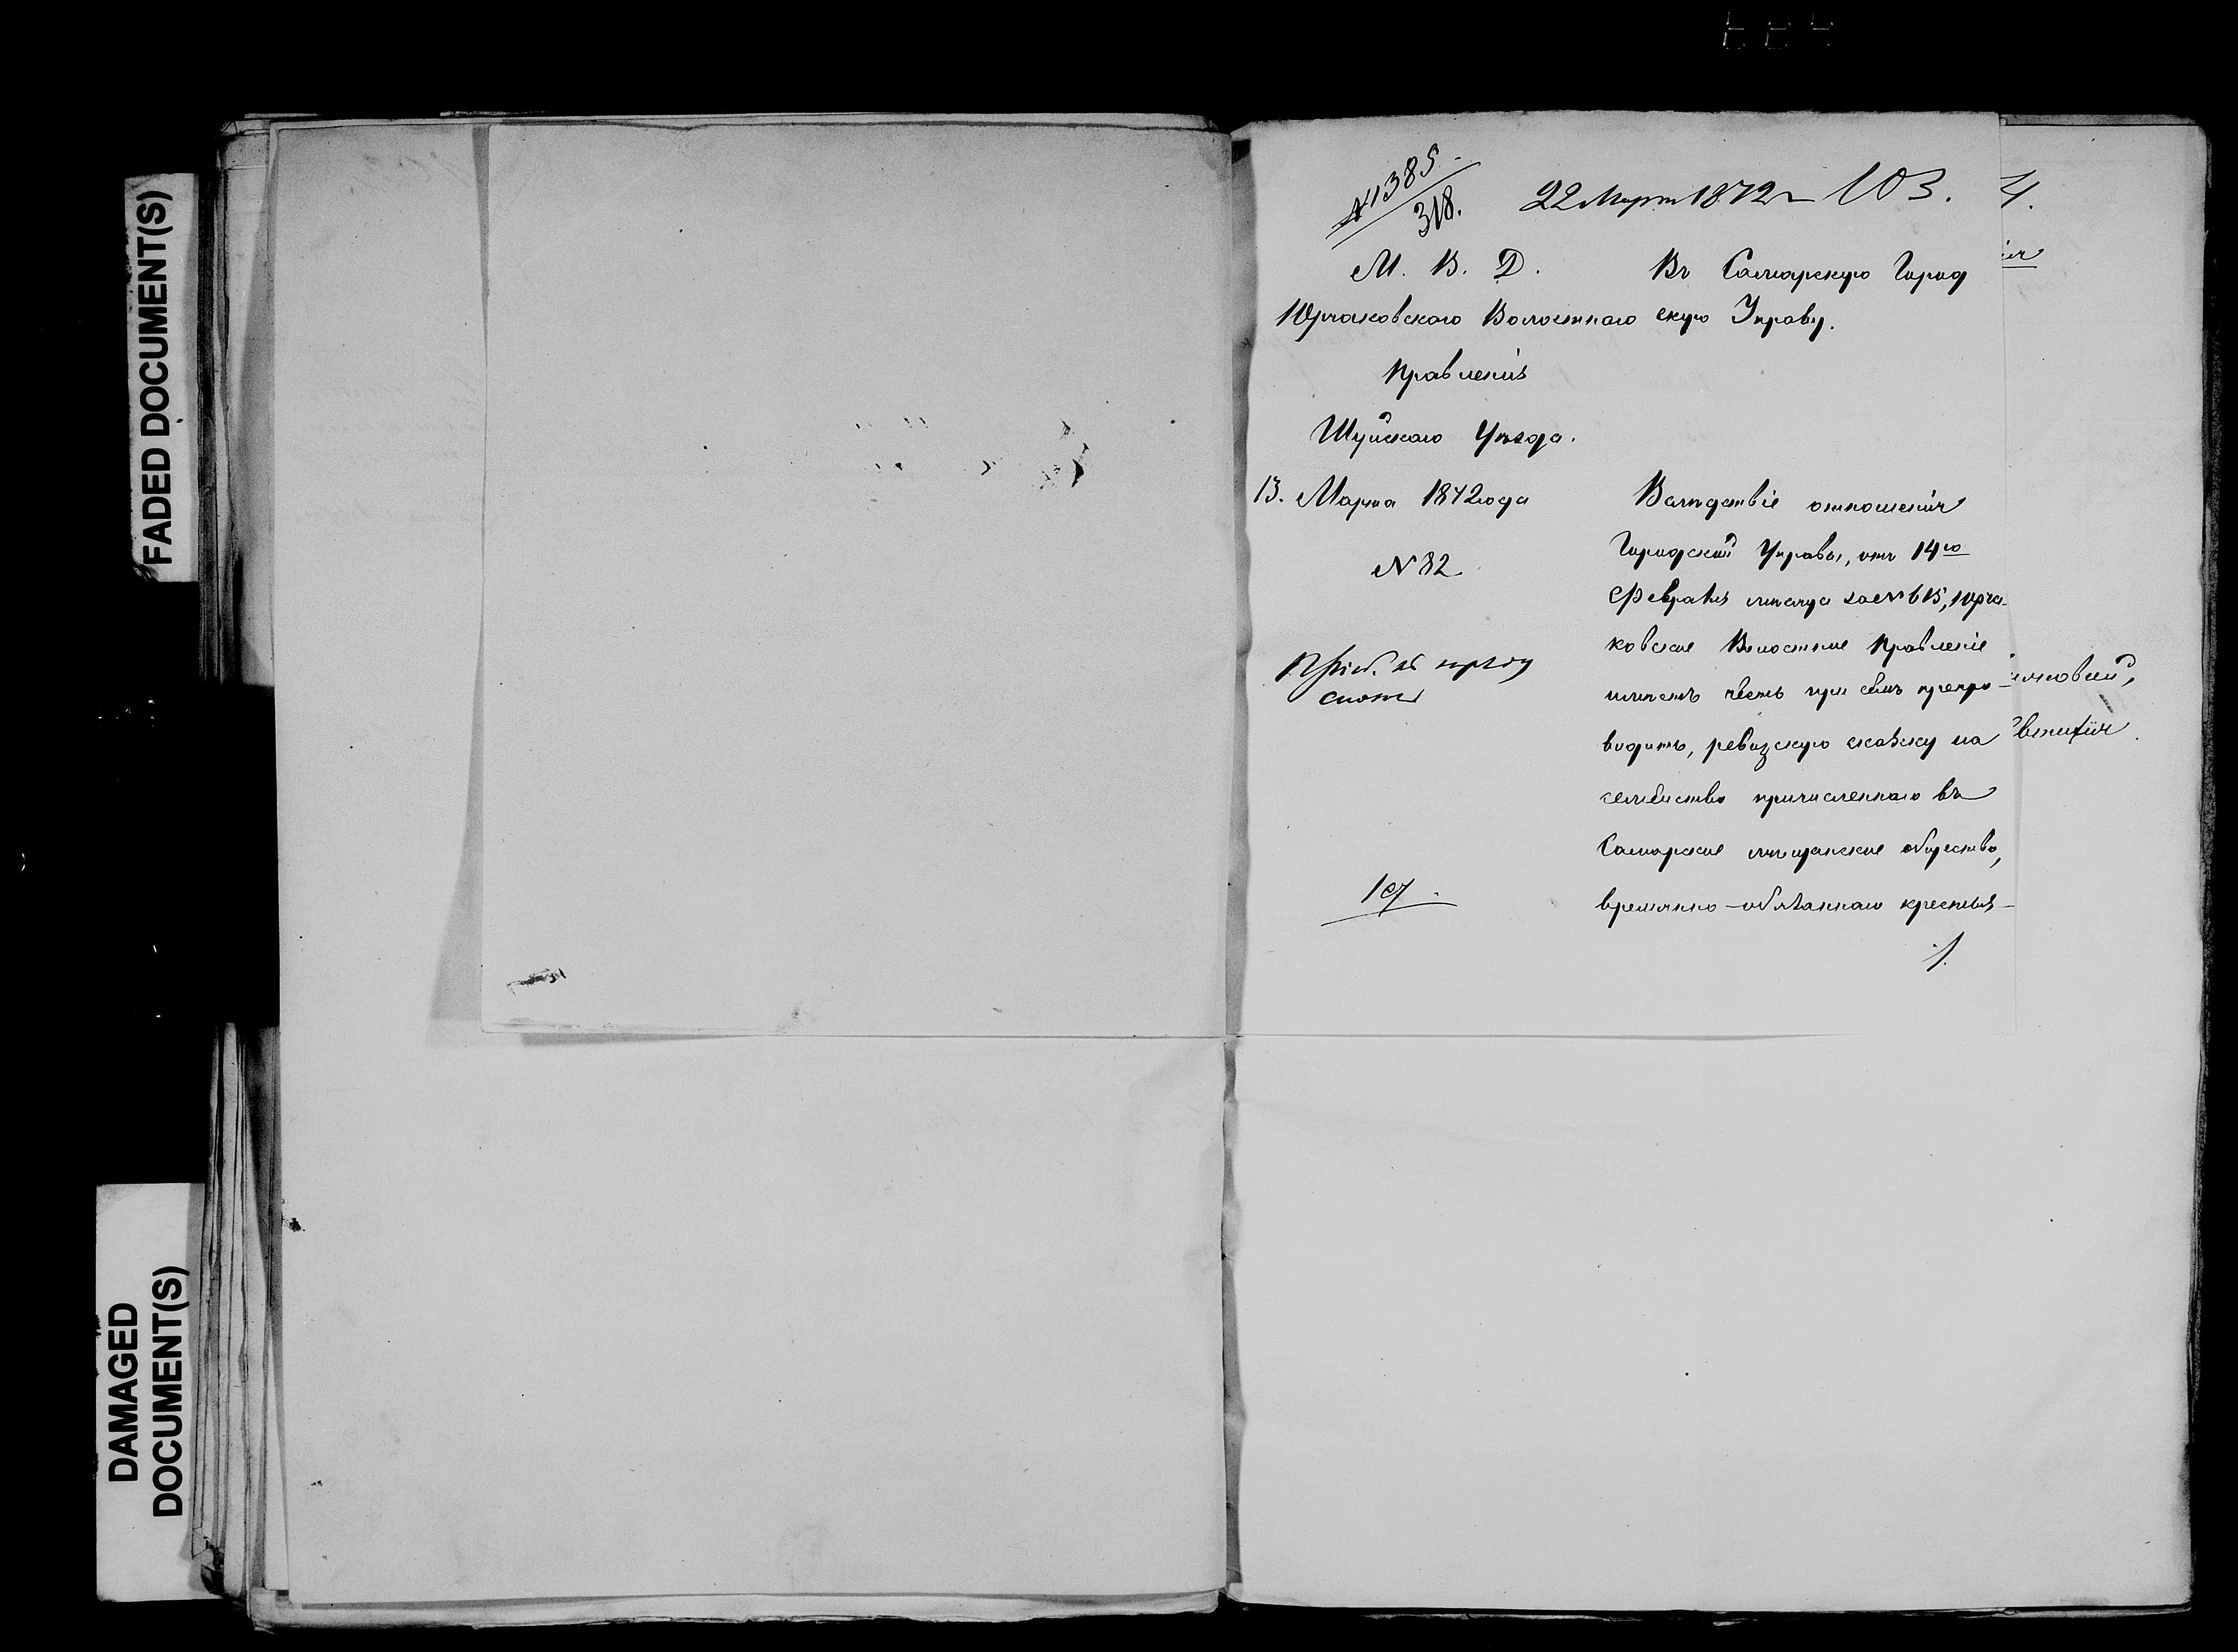 FADED DOCUMENT(S)
DAMAGED
DOCUMENT(S)
№ 1385.
318.
22 Марта 1872 г.
103.
М. В. Д.
Юрчаковскаго Волостнаго
Правленія
Шуйскаго Уѣзда.
13. Марта 1872 года
№ 82
1 ст.
Въ Самарскую Город
скую Управу.
Вслѣдствіе отношенія
Городской Управы, отъ 14го
Февраля мѣсяца за № 615, Юрча-
ковское Волостное Правленіе
имѣетъ честь при семъ препро-
водить, ревизскую сказку на
семѣйство причисленнаго въ
Самарское мѣщанское общество,
временно-обязаннаго крестья-
4.